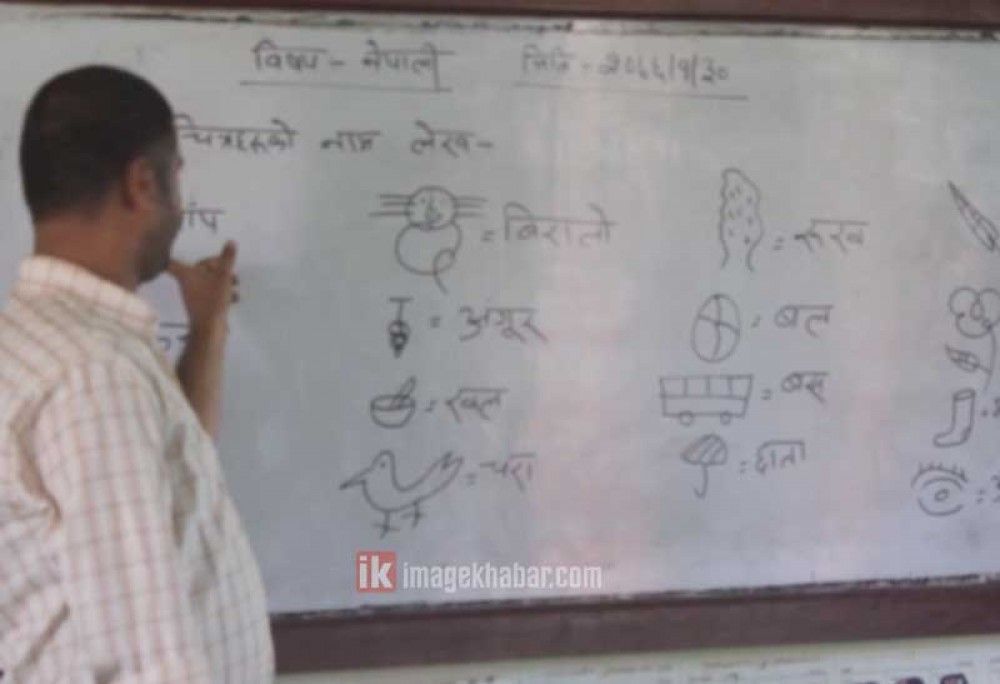 विषय - नेपाली मिति - २०६६/१/३०
चित्रहरूको नाम लेख -
= बिरालो = रूख
= अंगूर = बल
= खल = बस
= चरा = छाता
ik imagekhabar.com